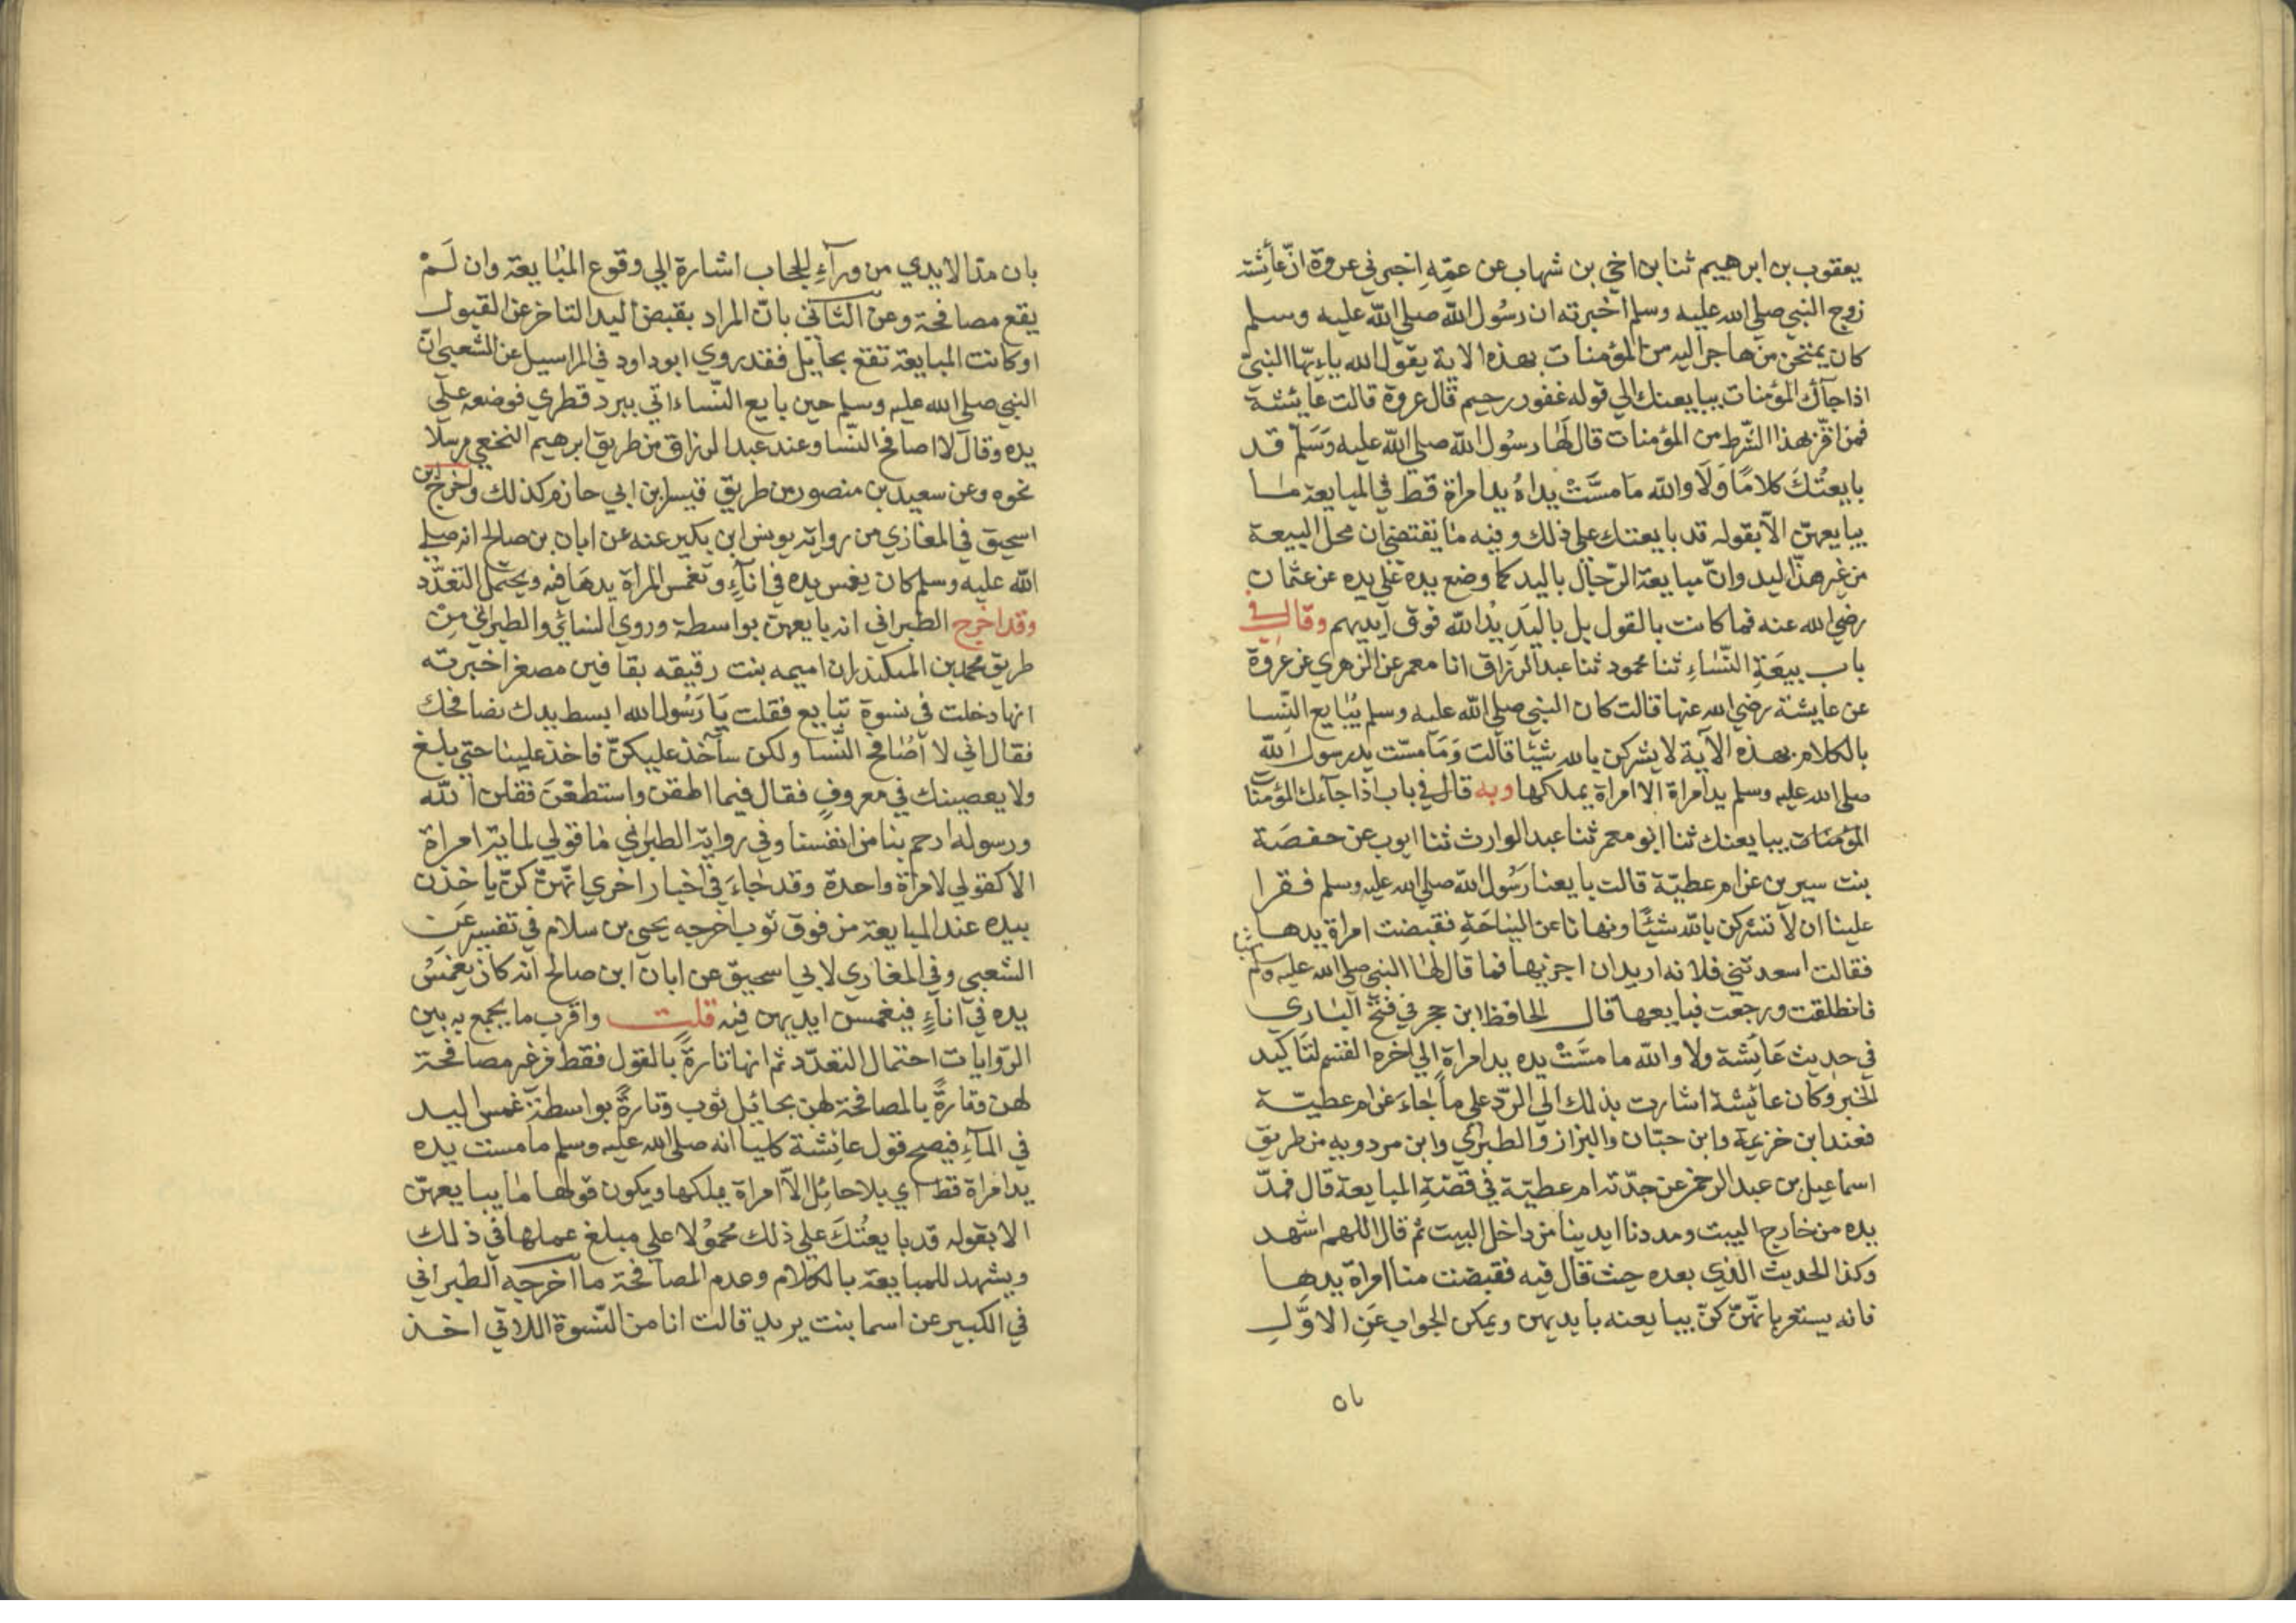 يعقوب بن ابرهيم ثنا بن اخي بن شهاب عن عمّه اخبرني عروة انّ عائشة
زوج النبي صلي الله عليه وسلم اخبرته ان رسُول اللّه صلي اللّه عليه وسلم
كان يمتحن من هاجر اليه من المؤمنات بهذه الاية يقول الله ياءيّها النبيّ
اذا جآك المؤمنات يبايعنك الي قوله غفور رحيم قال عروة قالت عايشة
فمن اقرّ بهذا الشّرط من المؤمنات قال لَها رسُول اللّه صلي اللّه عليه وَسَلّم قد
بايعتُكَ كلامًا وَلَا واللّه مَا مسَّتْ يداهُ يد امراة قطّ في المبايعة ما
يبايعهنّ الّا بقوله قد بايعتك علي ذلك وفيه ما يقتضي ان محل البيعة
من غير هذا اليد وانّ مبايعة الرّجال باليد كما وضع يده علي يده عن عثمان
رضي الله عنه فما كانت بالقول بل باليَد يدُ اللّه فوق ايديهم وقال في
باب بيعَةِ النّسَاءِ ثنا محمود ثنا عبد الرزاق انا معمر عن الزهري عن عروة
عن عايشة رضي الله عنها قالت كان النبي صلي اللّه عليه وسلم يُبايع النّسا
بالكلام بهذه الآية لا يشركن بالله شيئًا قالت وَمَا مسّت يد رسول اللّه
صلي الله عليه وسلم يد امراة الا امراة يملكها وبه قال في باب اذا جآءك المؤمنات
المؤمنات يبايعنك ثنا ابو معمر ثنا عبد الوارث ثنا ايوب عن حفصَة
بنت سيرين عن ام عطيّة قالت بايعنا رَسُول اللّه صلي الله عليه وسلم فقرا
علينا ان لا تشركن باللّه شيئًا ونهانا عن النياحَةِ فقبضت امراة يدها
فقالت اسعدتني فلانه اريد ان اجزيها فما قال لها النبي صلي الله عليه وسلم شيًا
فانطلقت ورجعت فبايعها قال الحافظ ابن حجر في فتح الباري
في حديث عَائشة ولا واللّه ما مسّتْ يده يد امراةٍ الي اخره القسم لتاكيد
الخبر وكان عائشة اشارت بذلك الي الرّد علي ما جاءَ عن ام عطيّة
فعند ابن خزيمة وابن حبّان والبزاز والطبري وابن مردويه من طريق
اسماعيل بن عبد الرحمن عن جدّته ام عطيّة في قصّةِ المبايعة قال فمدّ
يده من خارج البيت ومددنا ايدينا من داخل البيت ثم قال اللهم اشهد
وكذا الحديث الذي بعده حيث قال فيه فقبضت منا امراة يدها
فانه يستعر بانّهنّ كنّ يبايعنه بايديهن ويمكن الجواب عَنِ الاوَّلِ
بان مدّ الايدي من ورآءِ الحجاب اشارة الي وقوع المبَايعة وان لَمْ
يقع مصافحة وعن الثّاني بانّ المراد بقبض اليد التاخر عن القبول
او كانت المبايعة تقع بحايل فقد روي ابو داود في المراسيل عن الشعبي انّ
النبي صلي الله عليه وسلم حين بايع النّساء اتي ببرد قطري فوضعه علي
يده وقال لا اصافح النّسا وعند عبد الرزاق من طريق ابرهيم النخعي مرسلا
نحوه وعن سعيد بن منصور من طريق قيس ابن ابي حازم كذلك واخرج ابن
اسحق في المغازي من رواية يونس ابن بكير عنه عن ابان بن صالح انه صلي
اللّه عليه وسلم كان يغمس يده في انآءٍ وتغمس المرأة يدهَا فيه ويحتمل التعدّد
وقد اخرج الطبراني انه بايعهن بواسطة وروي النسائي والطبراني مِنْ
طريق محمد بن المنكدر ان اميمه بنت رقيقه بقافين مصغر اخبرته
انها دخلت في نسوة تبايع فقلت يَا رَسُول الله ابسط يدك نصافحك
فقال اني لا اُصَافح النّسا ولكن سآخذ عليكنّ فاخذ علينا حتي بلغ
ولا يعصينك في معروفٍ فقال فيما اطقن واستطعْنَ فقلن اللّه
ورسوله ارحم بنا من انفسنا وفي رواية الطبراني مَا قولي لماية امراة
الا كقولي لامراة واحدة وقد جَاءَ في اخبار اخري انّهنّ كنّ ياخذن
بيده عند المبايعة من فوق ثوب اخرجه يحيي بن سلام في تفسيره عَنِ
الشعبي وفي المغازي لابي اسحيق عن ابان ابن صالح انه كان يغمسُ
يده في اناءٍ فيغمسن ايديهن فيه قلت واقرب ما يجمع به بين
الرّوايات احتمال التعدّد ثم انها تارةً بالقول فقط من غير مصافحة
لهن وتارةً بالمصافحة لهن بحائيل ثوب وتارةً بواسطة غمس اليد
في المآءِ فيصح قول عائشة كليا انه صلي الله عليه وسلم ما مست يده
يد امراة قط اي بلا حائِل الّا امراة يملكها ويكون قولها مَا يبايعهنّ
الا بقوله قد بايعتُكَ علي ذلك محموُلا علي مبلغ عملها في ذلك
ويشهد للمبايعة بالكلام وعدم المصافحة ما اخرجه الطبراني
في الكبير عن اسما بنت يريد قالت انا من النّسوة اللاتي اخذ